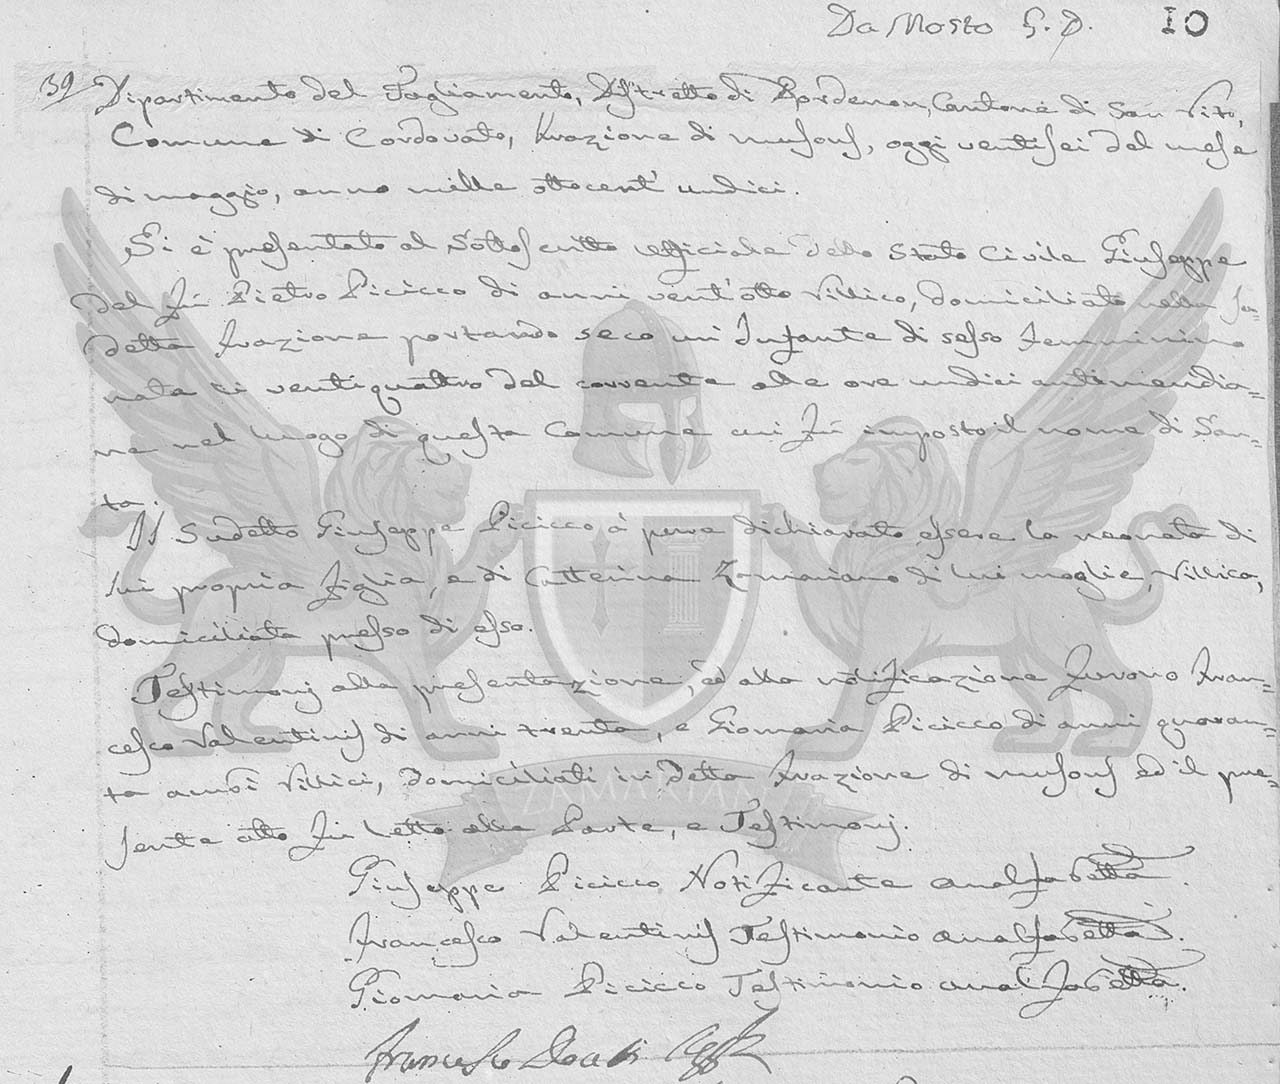 Da Mosto G. D. 10
39 Dipartimento del Tagliamento, Distretto di Pordenon, Cantone di San Vito,
Comune di Cordovato, Frazione di musons, oggi ventisei del mese
di maggio, anno mille ottocent' undici.
Si è presentato al Sottoscritto Ufficiale dello Stato Civile Giuseppe
del fù Pietro Picicco di anni vent'otto Villico, domiciliato nella su=
detta Frazione portando seco un Infante di sesso Femminino
nata li ventiquattro del corrente alle ore undici antimeridia=
ne nel luogo di questa Comune cui fù imposto il nome di San=
ta.
Il Sudetto Giuseppe Picicco à pure dichiarato essere la neonata di
lui propria figlia, e di Catterina Zamariano di lui moglie, Villica,
domiciliata presso di esso.
Testimonj alla presentazione, ed alla notificazione furono Fran=
cesco Valentinis di anni trenta, e Giomaria Picicco di anni quaran=
ta ambi Villici, domiciliati in detta Frazione di musons ed il pre=
sente atto fù letto alla Parte, e Testimonj.
Giuseppe Picicco Notificante analfabetta.
Francesco Valentinis Testimonio analfabetta.
Giomaria Picicco Testimonio analfabetta.
Francesco
ZAMARIAN